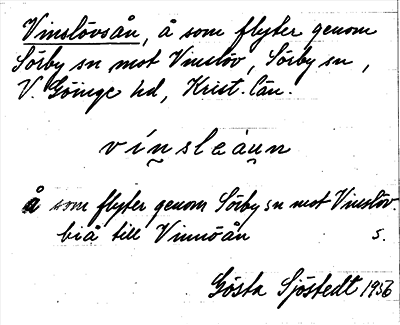 Vinslövsån, å som flyter genom
Sörby sn mot Vinslöv, Sörby sn,
V. Göinge hd, Krist. län.
vínsleàun
å som flyter genom Sörby sn mot Vinslöv.
biå till Vinnöån s.
Gösta Sjöstedt 1936